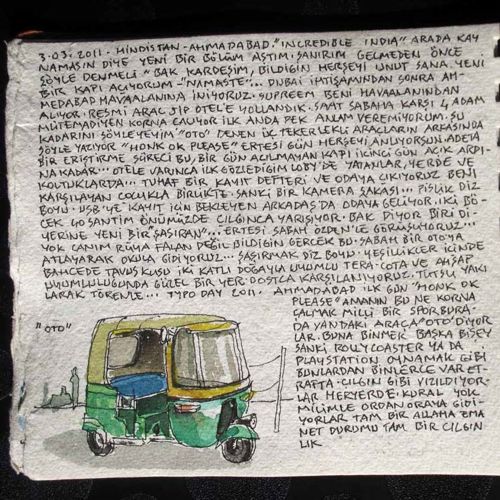 3.03.2011 - HİNDİSTAN - AHMADABAD. "INCREDIBLE INDIA" ARADA KAY
NAMASIN DİYE YENİ BİR BÖLÜM AÇTIM. SANIRIM GELMEDEN ÖNCE
ŞÖYLE DENMELİ "BAK KARDEŞİM, BİLDİĞİN HERŞEYİ UNUT SANA YENİ
BİR KAPI AÇIYORUM - "NAMASTE"... DUBAI İHTİŞAMINDAN SONRA AH-
MEDABAD HAVAALANINA İNİYORUZ. SUPREEM BENİ HAVAALANINDAN
ALIYOR. RESMİ ARAÇ JİP OTELE YOLLANDIK. SAAT SABAHA KARŞI 4 ADAM
MÜTEMADİYEN KORNA ÇALIYOR İLK ANDA PEK ANLAM VEREMİYORUM. ŞU
KADARINI SÖYLEYEYİM "OTO" DENEN ÜÇ TEKERLEKLİ ARAÇLARIN ARKASINDA
ŞÖYLE YAZIYOR "HONK OK PLEASE" ERTESİ GÜN HERŞEYİ ANLIYORSUN. ADETA
BİR ERİŞTİRME SÜRECİ BU, BİR GÜN AÇILMAYAN KAPI İKİNCİ GÜN ACIK ARDI-
NA KADAR... OTELE VARINCA İLK GÖZLEDİĞİM LOBY'DE YATANLAR, YERDE VE
KOLTUKLARDA... TUHAF BİR KAYIT DEFTERİ VE ODAYA ÇIKIYORUZ BENİ
KARŞILAYAN ÇOCUKLA BİRLİKTE. SANKİ BİR KAMERA ŞAKASI... PİSLİK DİZ
BOYU. USB'YE KAYIT İÇİN BEKLEYEN ARKADAŞ DA ODAYA GELİYOR. İKİ BÖ-
CEK 40 SANTİM ÖNÜMÜZDE ÇILGINCA YARIŞIYOR. BAK DİYOR BİRİ Dİ-
ĞERİNE YENİ BİR "ŞAŞIRAN"... ERTESİ SABAH ÖZDEN'LE GÖRÜŞÜYORUZ...
YOK CANIM RÜYA FALAN DEĞİL BİLDİĞİN GERÇEK BU. SABAH BİR OTOYA
ATLAYARAK OKULA GİDİYORUZ... ŞAŞIRMAK DİZ BOYU. YEŞİLLİKLER İÇİNDE
BAHÇEDE TAVUSKUŞU İKİ KATLI DOĞAYLA UYUMLU TERA COTA VE AHŞAP
UYUMLULUĞUNDA GÜZEL BİR YER. DOSTÇA KARŞILANIYORUZ. TÜTSÜ YAKI
LARAK TÖRENLE... TYPO DAY 2011. AHMADABAD İLK GÜN "HONK OK
PLEASE" AMANIN BU NE KORNA
ÇALMAK MİLLİ BİR SPOR BURA-
DA YANDAKİ ARACA "OTO" DİYOR
LAR. BUNA BİNMEK BAŞKA BİŞEY
SANKİ ROLLYCOASTER YA DA
PLAYSTATION OYNAMAK GİBİ
BUNLARDAN BİNLERCE VAR ET-
RAFTA. ÇILGIN GİBİ VIZILDIYOR-
LAR HERYERDE. KURAL YOK
MİLİMLE ORDAN ORAYA GİDİ-
YORLAR TAM BİR ALLAHA EMA
NET DURUMU TAM BİR ÇILGIN
LIK
"OTO"